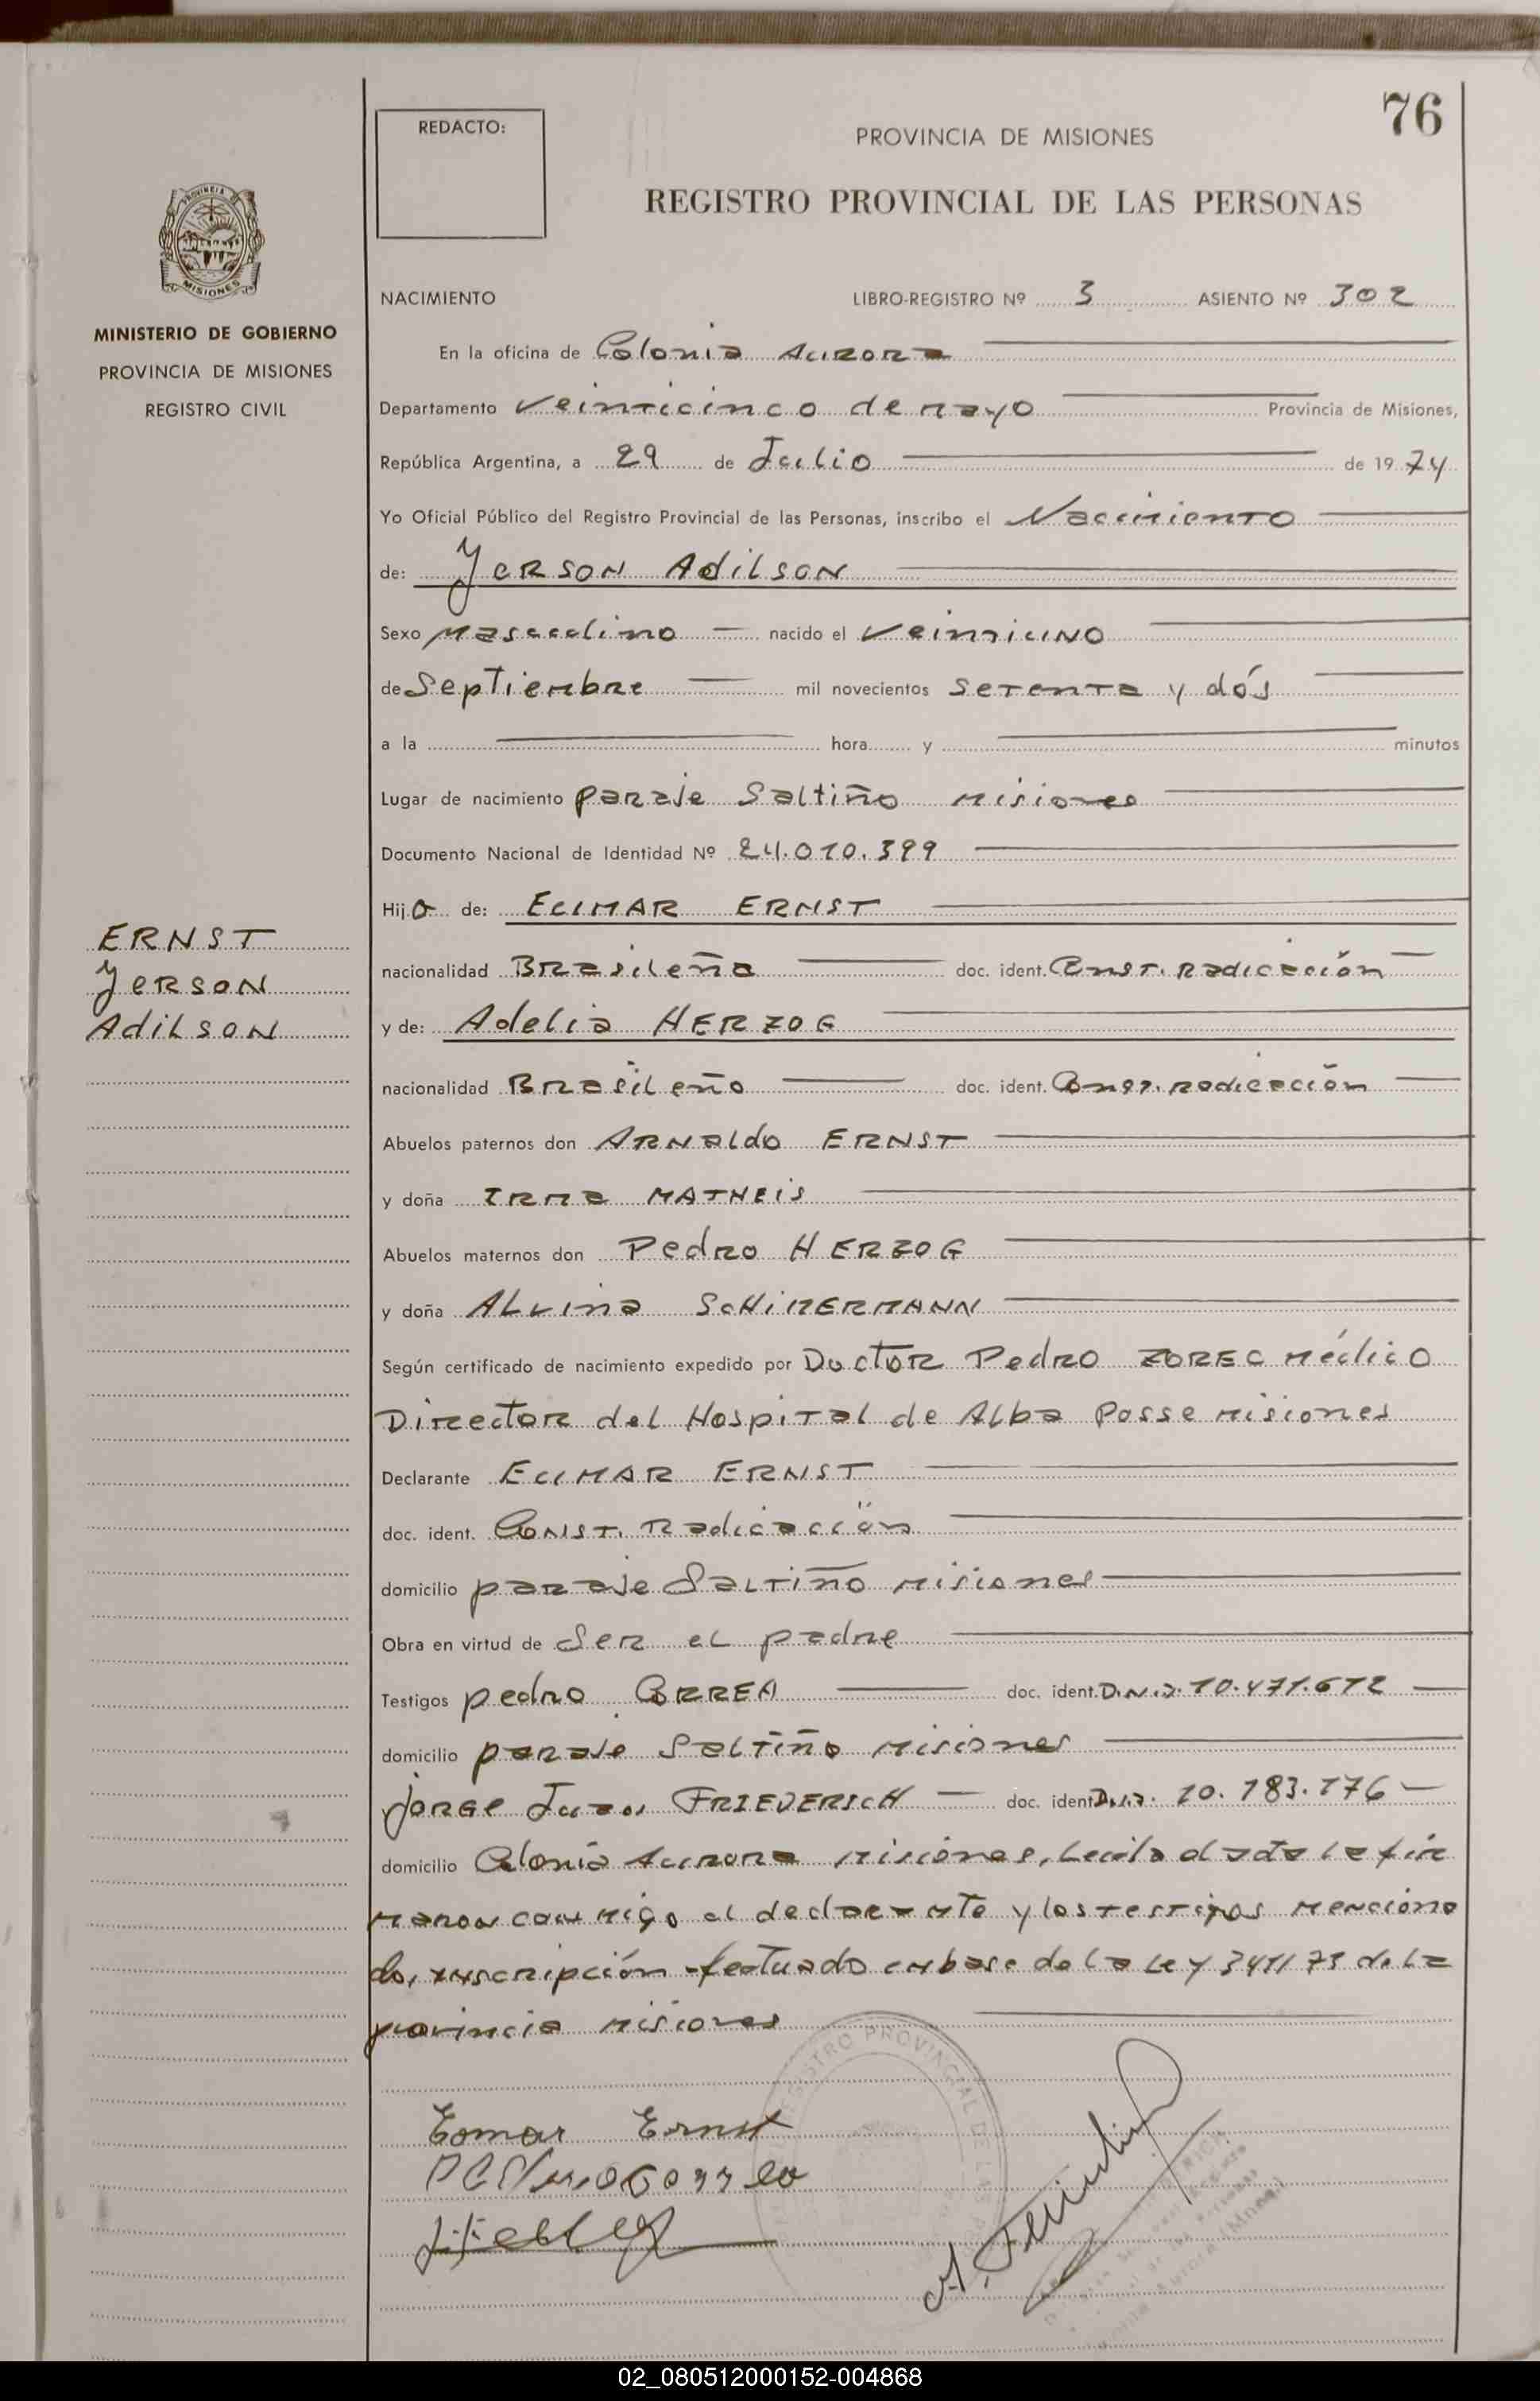 76
REDACTO:
PROVINCIA DE MISIONES
REGISTRO PROVINCIAL DE LAS PERSONAS
PROVINCIA
MISIONES
MINISTERIO DE GOBIERNO
PROVINCIA DE MISIONES
REGISTRO CIVIL
NACIMIENTO LIBRO-REGISTRO Nº 3 ASIENTO Nº 302
En la oficina de Colonia Aurora
Departamento Veinticinco de mayo Provincia de Misiones,
República Argentina, a 29 de Julio de 1974
Yo Oficial Público del Registro Provincial de las Personas, inscribo el Nacimiento
de: Yerson Adilson
Sexo Masculino nacido el veintiuno
de Septiembre mil novecientos setenta y dós
a la hora y minutos
Lugar de nacimiento paraje Saltiño Misiones
Documento Nacional de Identidad Nº 24.010.399
Hijo de: ECIMAR ERNST
ERNST
Yerson
Adilson
nacionalidad Brasileña doc. ident. Const. Radicación
y de: Adelia HERZOG
nacionalidad Brasileño doc. ident. Const. radicación
Abuelos paternos don Arnaldo ERNST
y doña Irma MATHEIS
Abuelos maternos don Pedro HERZOG
y doña Alvina SCHIMERMANN
Según certificado de nacimiento expedido por Doctor Pedro ZOREC Médico
Director del Hospital de Alba Posse Misiones
Declarante ECIMAR ERNST
doc. ident. Const. Radicación
domicilio paraje Saltiño Misiones
Obra en virtud de Ser el padre
Testigos pedro CORREA doc. ident. D.N.I. 10.471.612
domicilio paraje Saltiño Misiones
Jorge FRIEDERICH doc. ident. D.N.I. 10.183.176
domicilio Colonia Aurora Misiones, Leida el acta la fir
maron conmigo el declarante y los testigos menciona
do, inscripción efectuado en base de la Ley 341/73 de la
provincia Misiones
REGISTRO PROVINCIAL DE LAS
Ecmar Ernst
02_080512000152-004868